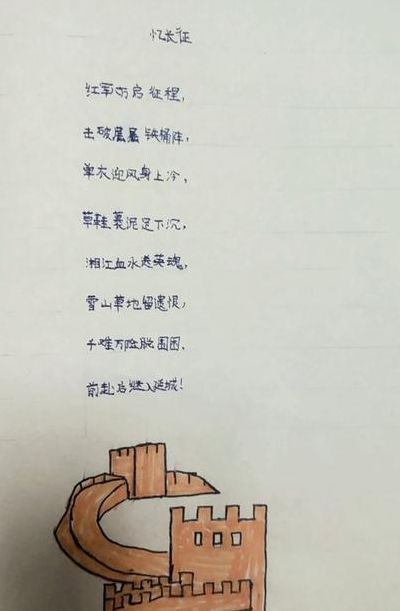 忆长征
红军方启征程,
击破层层铁桶阵,
单衣迎风身上冷,
草鞋裹泥足下沉,
湘江血水卷英魂,
雪山草地留遗恨,
千难万险脱围困,
前赴后继入延城!